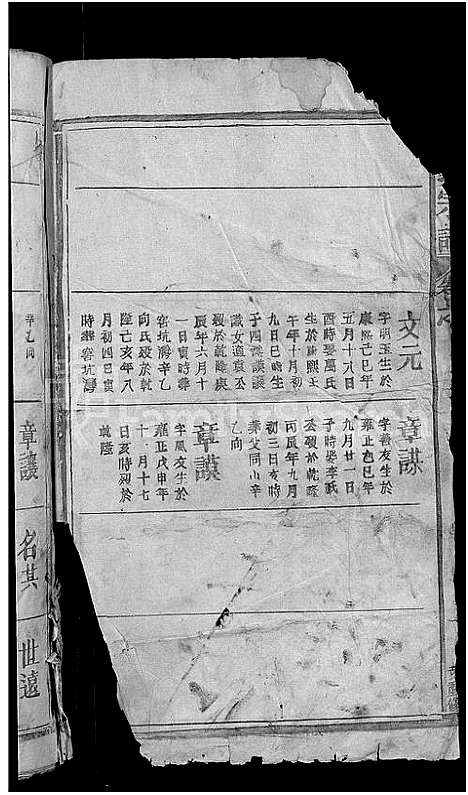 文元
字明玉生於
康熙己巳年
五月十八日
酉時娶萬氏
生於康熙壬
午年十月初
九日巳時生
子四謀謨讓
識女適袁公
歿於乾隆庚
辰年六月十
一日寅時葬
窑坑灣辛乙
向氏歿於乾
隆丁亥年八
月初四日寅
時葬窑坑灣
辛乙向
章謀
字善友生於
雍正乙巳年
九月廿一日
子時娶李氏
公歿於乾隆
丙辰年九月
初三日亥時
葬父同山辛
乙向
章謨
字鳳友生於
雍正戊申年
十一月十七
日亥時歿於
乾隆
章讓
名其
世遠